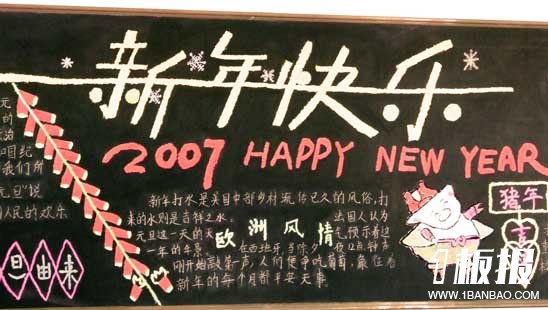 新年快乐
2007 HAPPY NEW YEAR
元
的
治
咱纪
我们所
元旦"说
人民的欢乐
旦由来
新年打水是英国中部乡村流传已久的风俗,打
来的水则是吉祥之水。
元旦这一天的天
一年的年景
欧洲风情
在西班牙,当除夕
刚开始敲第一声,人们便争吃葡萄,象征着
新年的每个月都平安无事。
出国人认为
气预示着这
夜12点钟声
猪年
吉
1板报
WWW.1BANBAO.COM